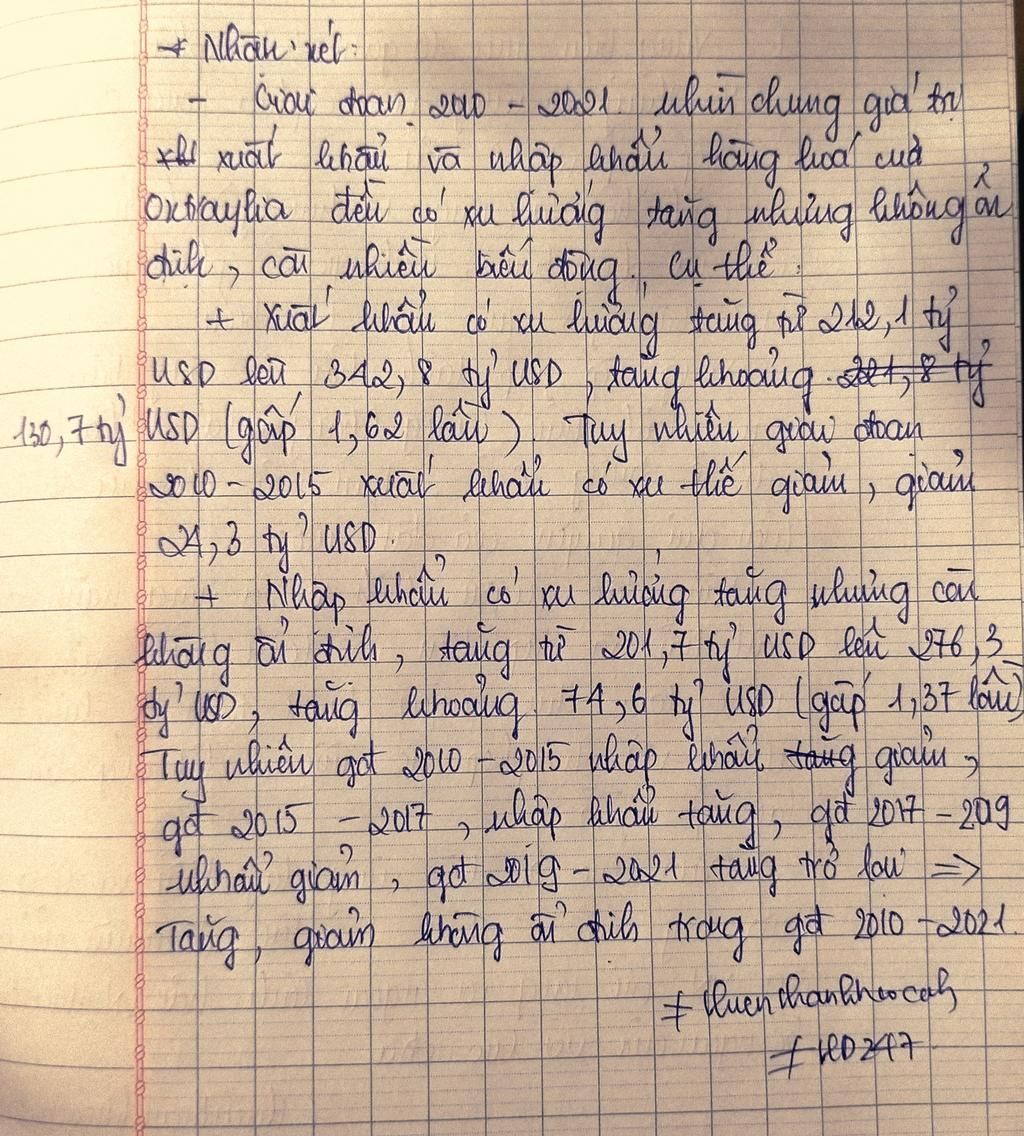 * Nhận xét:
- Giai đoạn 2010 - 2021 nhìn chung giá trị
xuất khẩu và nhập khẩu hàng hoá của
Oxtraylia đều có xu hướng tăng nhưng không ổn
định, còn nhiều biến động. Cụ thể:
+ Xuất khẩu có xu hướng tăng từ 212,1 tỷ
USD lên 342,8 tỷ USD, tăng khoảng 221,8 tỷ
130,7 tỷ USD (gấp 1,62 lần). Tuy nhiên giai đoạn
2010 - 2015 xuất khẩu có xu thế giảm, giảm
24,3 tỷ USD.
+ Nhập khẩu có xu hướng tăng nhưng còn
không ổn định, tăng từ 201,7 tỷ USD lên 276,3
tỷ USD, tăng khoảng 74,6 tỷ USD (gấp 1,37 lần)
Tuy nhiên gđ 2010 - 2015 nhập khẩu tăng giảm,
gđ 2015 - 2017, nhập khẩu tăng, gđ 2017 - 2019
nkhẩu giảm, gđ 2019 - 2021 tăng trở lại =>
Tăng, giảm không ổn định trong gđ 2010 - 2021.